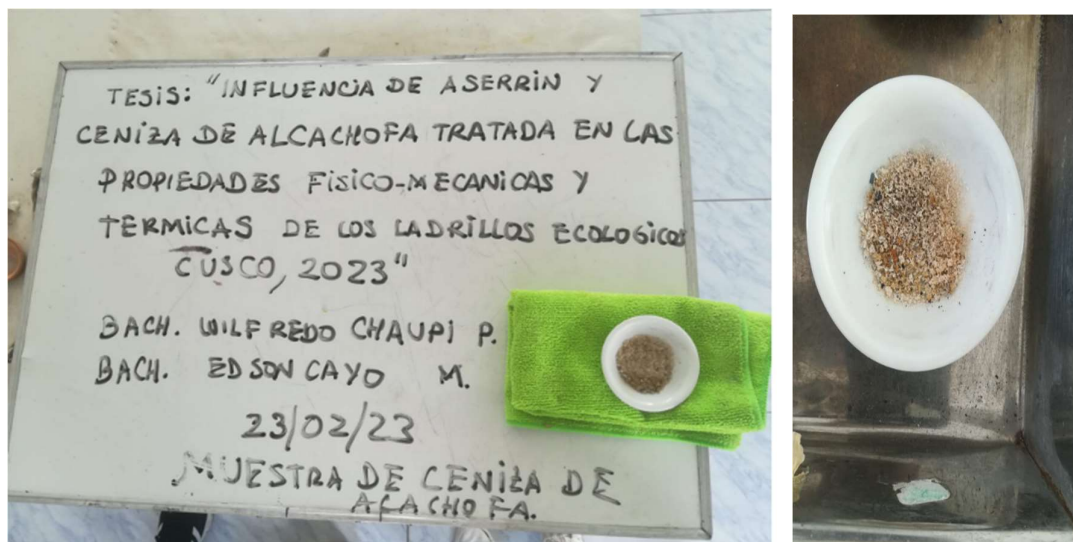 TESIS: "INFLUENCIA DE ASERRIN Y
CENIZA DE ALCACHOFA TRATADA EN LAS
PROPIEDADES FISICO-MECANICAS Y
TERMICAS DE LOS LADRILLOS ECOLOGICOS
CUSCO, 2023"
BACH. WILFREDO CHAUPI P.
BACH. EDSON CAYO M.
23/02/23
MUESTRA DE CENIZA DE
ALACHOFA.